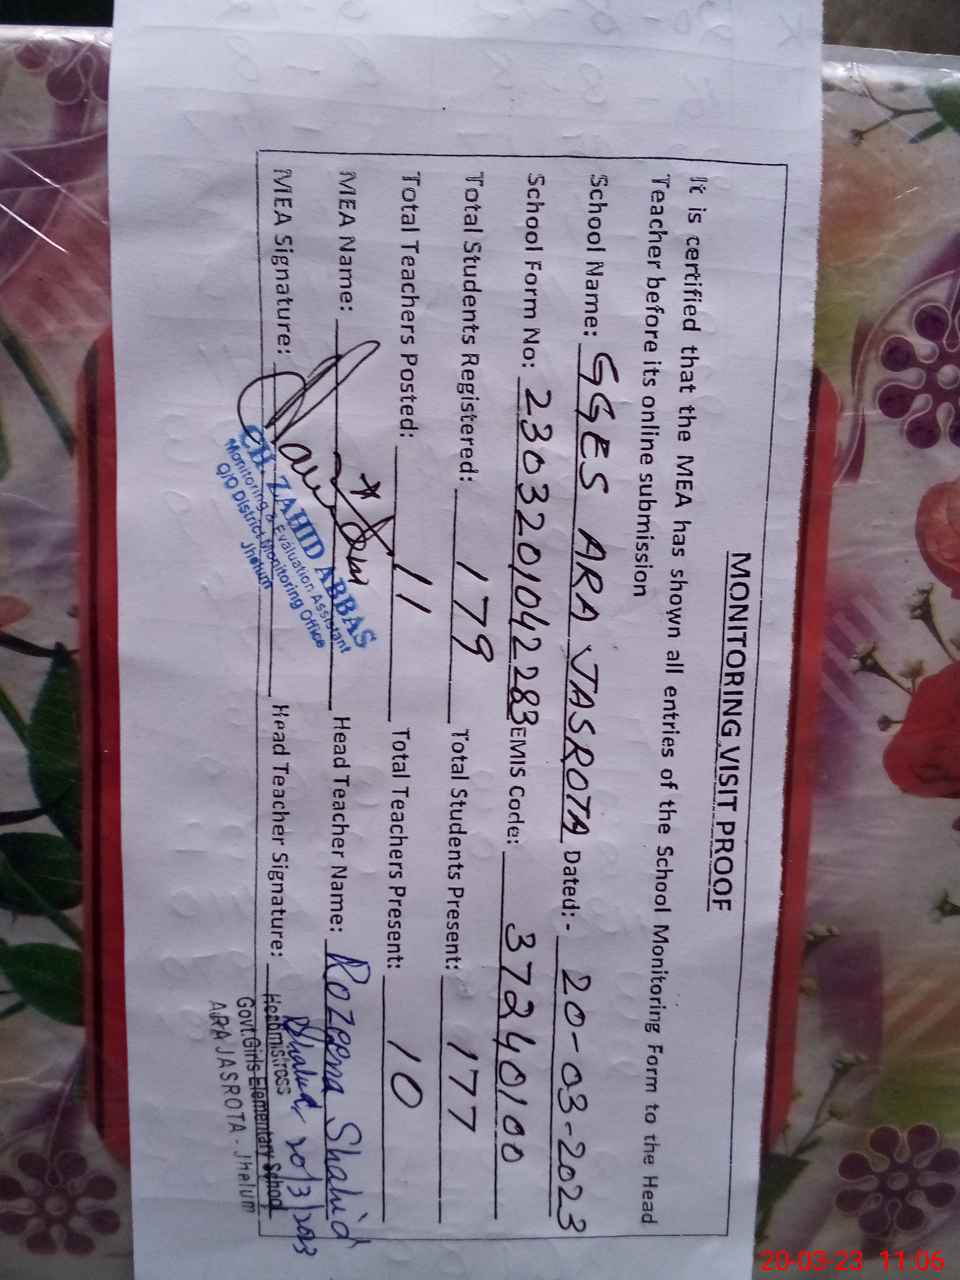 MONITORING VISIT PROOF
It is certified that the MEA has shown all entries of the School Monitoring Form to the Head
Teacher before its online submission
School Name: GGES ARA JASROTA Dated:- 20-03-2023
School Form No: 2303201042283 EMIS Code: 37240100
Total Students Registered: 179 Total Students Present: 177
Total Teachers Posted: 11 Total Teachers Present: 10
MEA Name: Head Teacher Name: Rozeena Shahid
MEA Signature: Head Teacher Signature:
CH. ZAHID ABBAS
Monitoring & Evaluation Assistant
O/O District Monitoring Office
Jhelum
Headmistress
20/3/2023
Govt.Girls Elementary School
ARA JASROTA - Jhelum
20-03-23 11:06